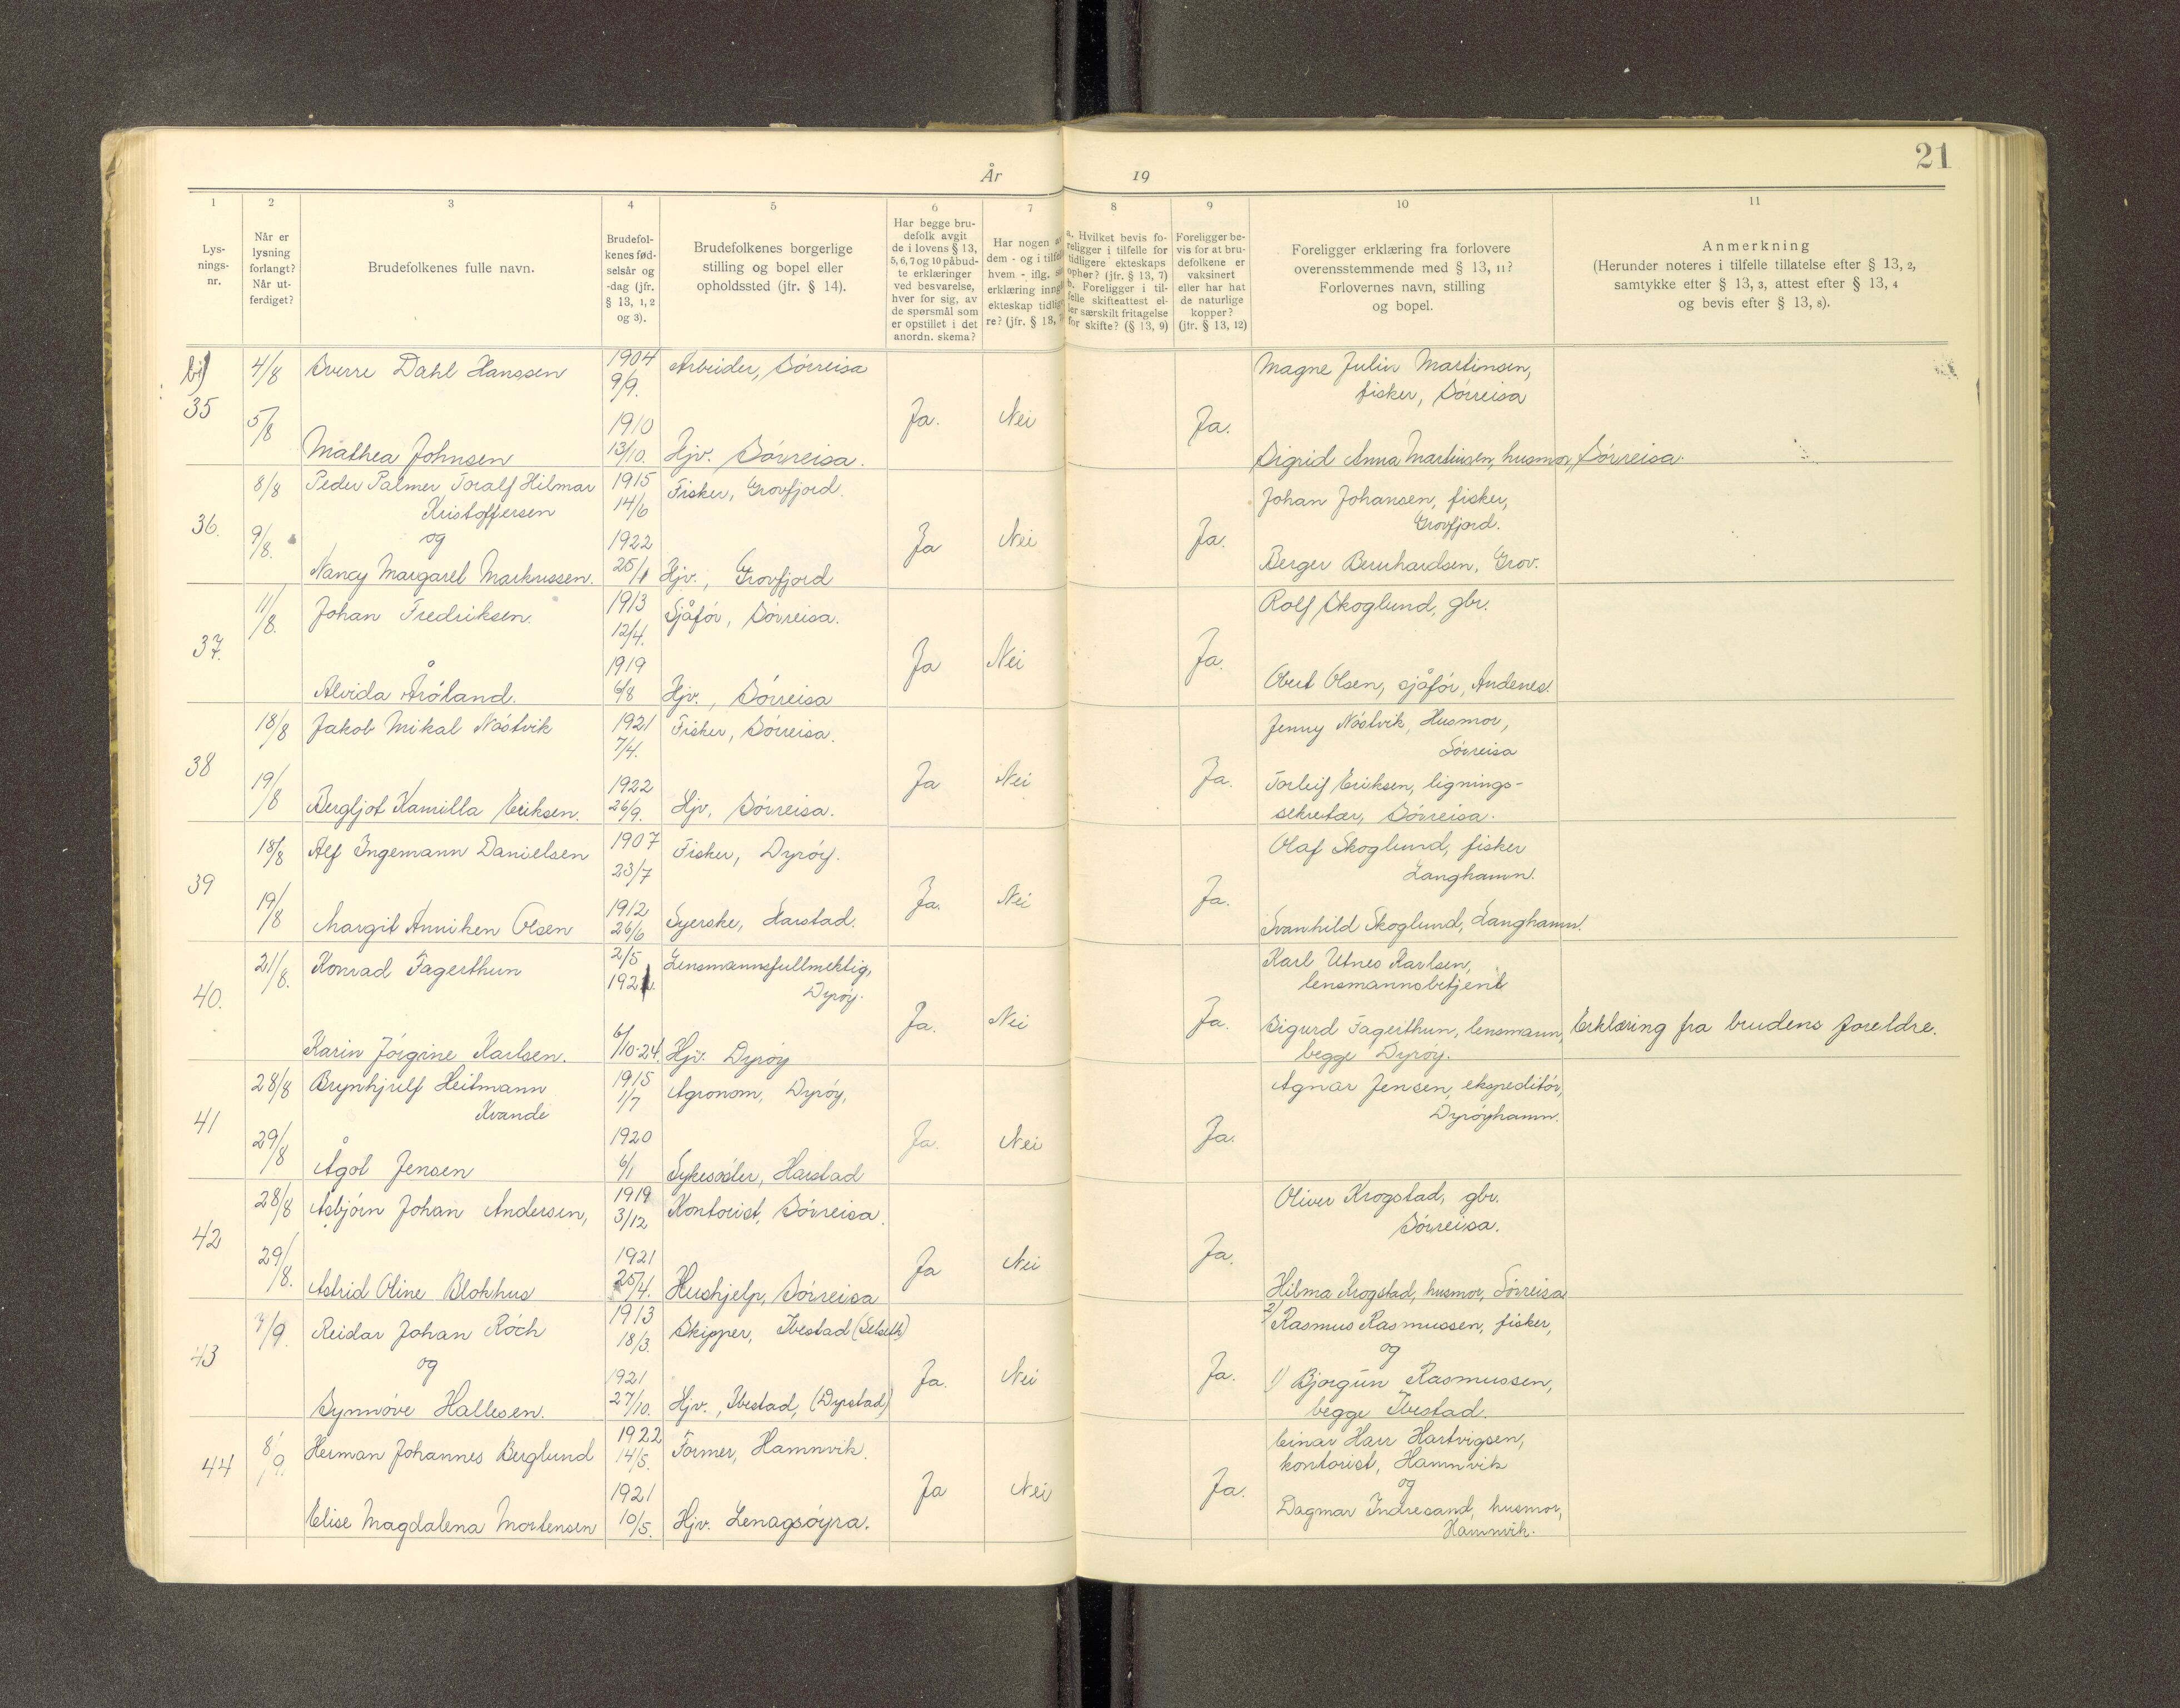 21
År 19
1 2 3 4 5 6 7 8 9 10 11
Lys-
nings-
nr.
Når er
lysning
forlangt?
Når ut-
ferdiget?
Brudefolkenes fulle navn.
Brudefol-
kenes fød-
selsår og
-dag (jfr.
§ 13, 1, 2
og 3).
Brudefolkenes borgerlige
stilling og bopel eller
opholdssted (jfr. § 14).
Har begge bru-
defolk avgit
de i lovens § 13,
5, 6, 7 og 10 påbud-
te erklæringer
ved besvarelse,
hver for sig, av
de spørsmål som
er opstillet i det
anordn. skema?
Har nogen av
dem - og i tilfelle
hvem - iflg.
erklæring inngå
ekteskap tidlige
re? (jfr. § 13,
a. Hvilket bevis fo-
religger i tilfelle for
tidligere ekteskaps
ophør? (jfr. § 13, 7)
b. Foreligger i til-
felle skifteattest el-
ler særskilt fritagelse
for skifte? (§ 13, 9)
Foreligger be-
vis for at bru-
defolkene er
vaksinert
eller har hat
de naturlige
kopper?
(jfr. § 13, 12)
Foreligger erklæring fra forlovere
overensstemmende med § 13, 11?
Forlovernes navn, stilling
og bopel.
Anmerkning
(Herunder noteres i tilfelle tillatelse efter § 13, 2,
samtykke efter § 13, 3, attest efter § 13, 4
og bevis efter § 13, 8).
4/8 Sverre Dahl Hanssen 1904 Arbeider, Sörreisa Magne Julin Martinsen,
9/9. fisker, Sörreisa
35 5/8 1910 Ja. Nei Ja.
Mathea Johnsen 13/10. Hjv. Sörreisa. Sigrid Anna Martinsen, husmor, Sörreisa.
8/8 Peder Palmer Toralf Hilmar 1915 Fisker, Grovfjord. Johan Johansen, fisker,
Kristoffersen 14/6 Grovfjord.
36. 9/8. og 1922 Ja Nei Ja.
Nancy Margaret Markussen. 25/1 Hjv., Grovfjord Berger Bernhardsen, Grov.
11/8. Johan Fredriksen. 1913 Sjåfór, Sörreisa. Rolf Skoglund, gbr.
12/4.
37. 1919 Ja Nei Ja.
Alvida Åróland. 6/8 Hjv., Sörreisa Obert Olsen, sjåfór, Andenes.
18/8 Jakob Mikal Nóstvik 1921 Fisker, Sörreisa. Jenny Nóstvik, Husmor,
7/4. Sörreisa
38 19/8 1922 Ja Nei Ja. Torleif Eriksen, lignings-
Bergljot Kamilla Eriksen. 26/9. Hjv, Sörreisa. sekretær, Sörreisa.
18/8 Alf Ingemann Danielsen 1907 Fisker, Dyröy. Olaf Skoglund, fisker
23/7 Langhamn.
39 19/8 1912 Ja. Nei Ja.
Margit Anniken Olsen 26/6 Syerske, Harstad. Svanhild Skoglund, Langhamn.
21/8. Konrad Fagerthun 2/5 Lensmannsfullmektig, Karl Utnes Karlsen,
1921. Dyröy. lensmannsbetjent
40. Ja. Nei Ja. Sigurd Fagerthun, lensmann, Erklæring fra brudens foreldre.
Karin Jörgine Karlsen. 6/10-24. Hjv. Dyröy begge Dyröy.
28/8 Brynhjulf Heitmann 1915 Agronom, Dyröy, Agnar Jensen, ekspeditór,
Kvande 1/7 Dyröyhamn.
41 29/8 1920 Ja. Nei Ja.
Ågot Jensen 6/1 Sykesöster, Harstad
28/8 Asbjörn Johan Andersen, 1919 Kontorist, Sörreisa. Oliver Krogstad, gbr.
3/12 Sörreisa.
42 29/8. 1921 Ja Nei Ja.
Astrid Oline Blokhus 25/4. Hushjelp, Sörreisa Hilma Krogstad, husmor, Sörreisa
/9. Reidar Johan Röch 1913 Skipper, Ibestad 2) Rasmus Rasmussen, fisker,
og 18/3. og
43 1921 Ja. Nei Ja. 1) Bjorgún Rasmussen,
Synnöve Hallesen. 27/10. Hjv., Ibestad, (Dyrstad) begge Ibestad.
8/9. Herman Johannes Berglund 1922 Former, Hamnvik. Einar Harr Hartvigsen,
14/5. kontorist, Hamnvik
44 1921 Ja Nei Ja. og
Elise Magdalena Mortensen 10/5. Hjv. Lenagsöyra. Dagmar Indresand, husmor,
Hamnvik.